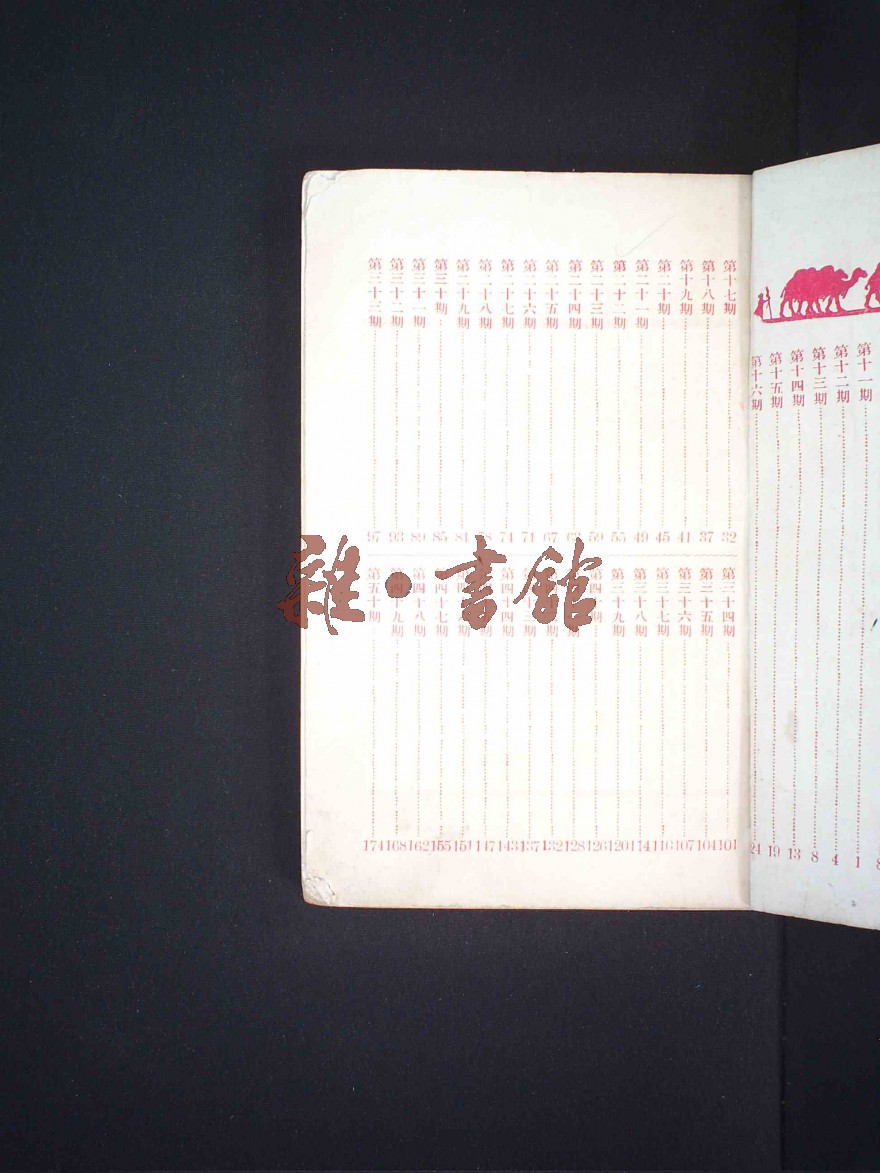 第十一期 1
第十二期 4
第十三期 8
第十四期 13
第十五期 19
第十六期 24
第十七期 32
第十八期 37
第十九期 41
第二十期 45
第二十一期 49
第二十二期 55
第二十三期 59
第二十四期
第二十五期 67
第二十六期 71
第二十七期 74
第二十八期
第二十九期 81
第三十期 85
第三十一期 89
第三十二期 93
第三十三期 97
第三十四期 101
第三十五期 104
第三十六期 107
第三十七期 110
第三十八期 114
第三十九期 120
126
128
132
137
143
147
151
第四十七期 155
第四十八期 162
第四十九期 168
第五十期 174
雜·書館